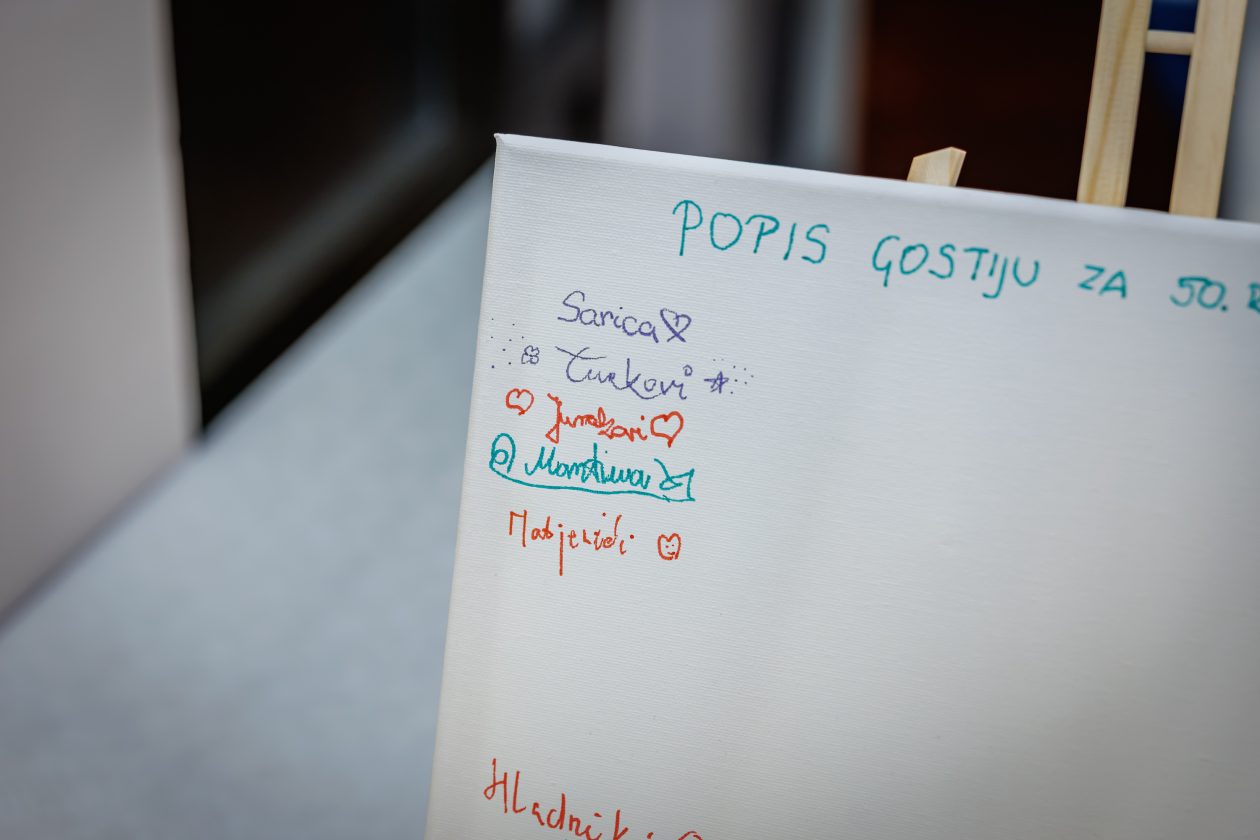 POPIS GOSTIJU ZA 50.
Sarica
Turkovi
Jurakovi
Martina
Matjekići
Hladniki